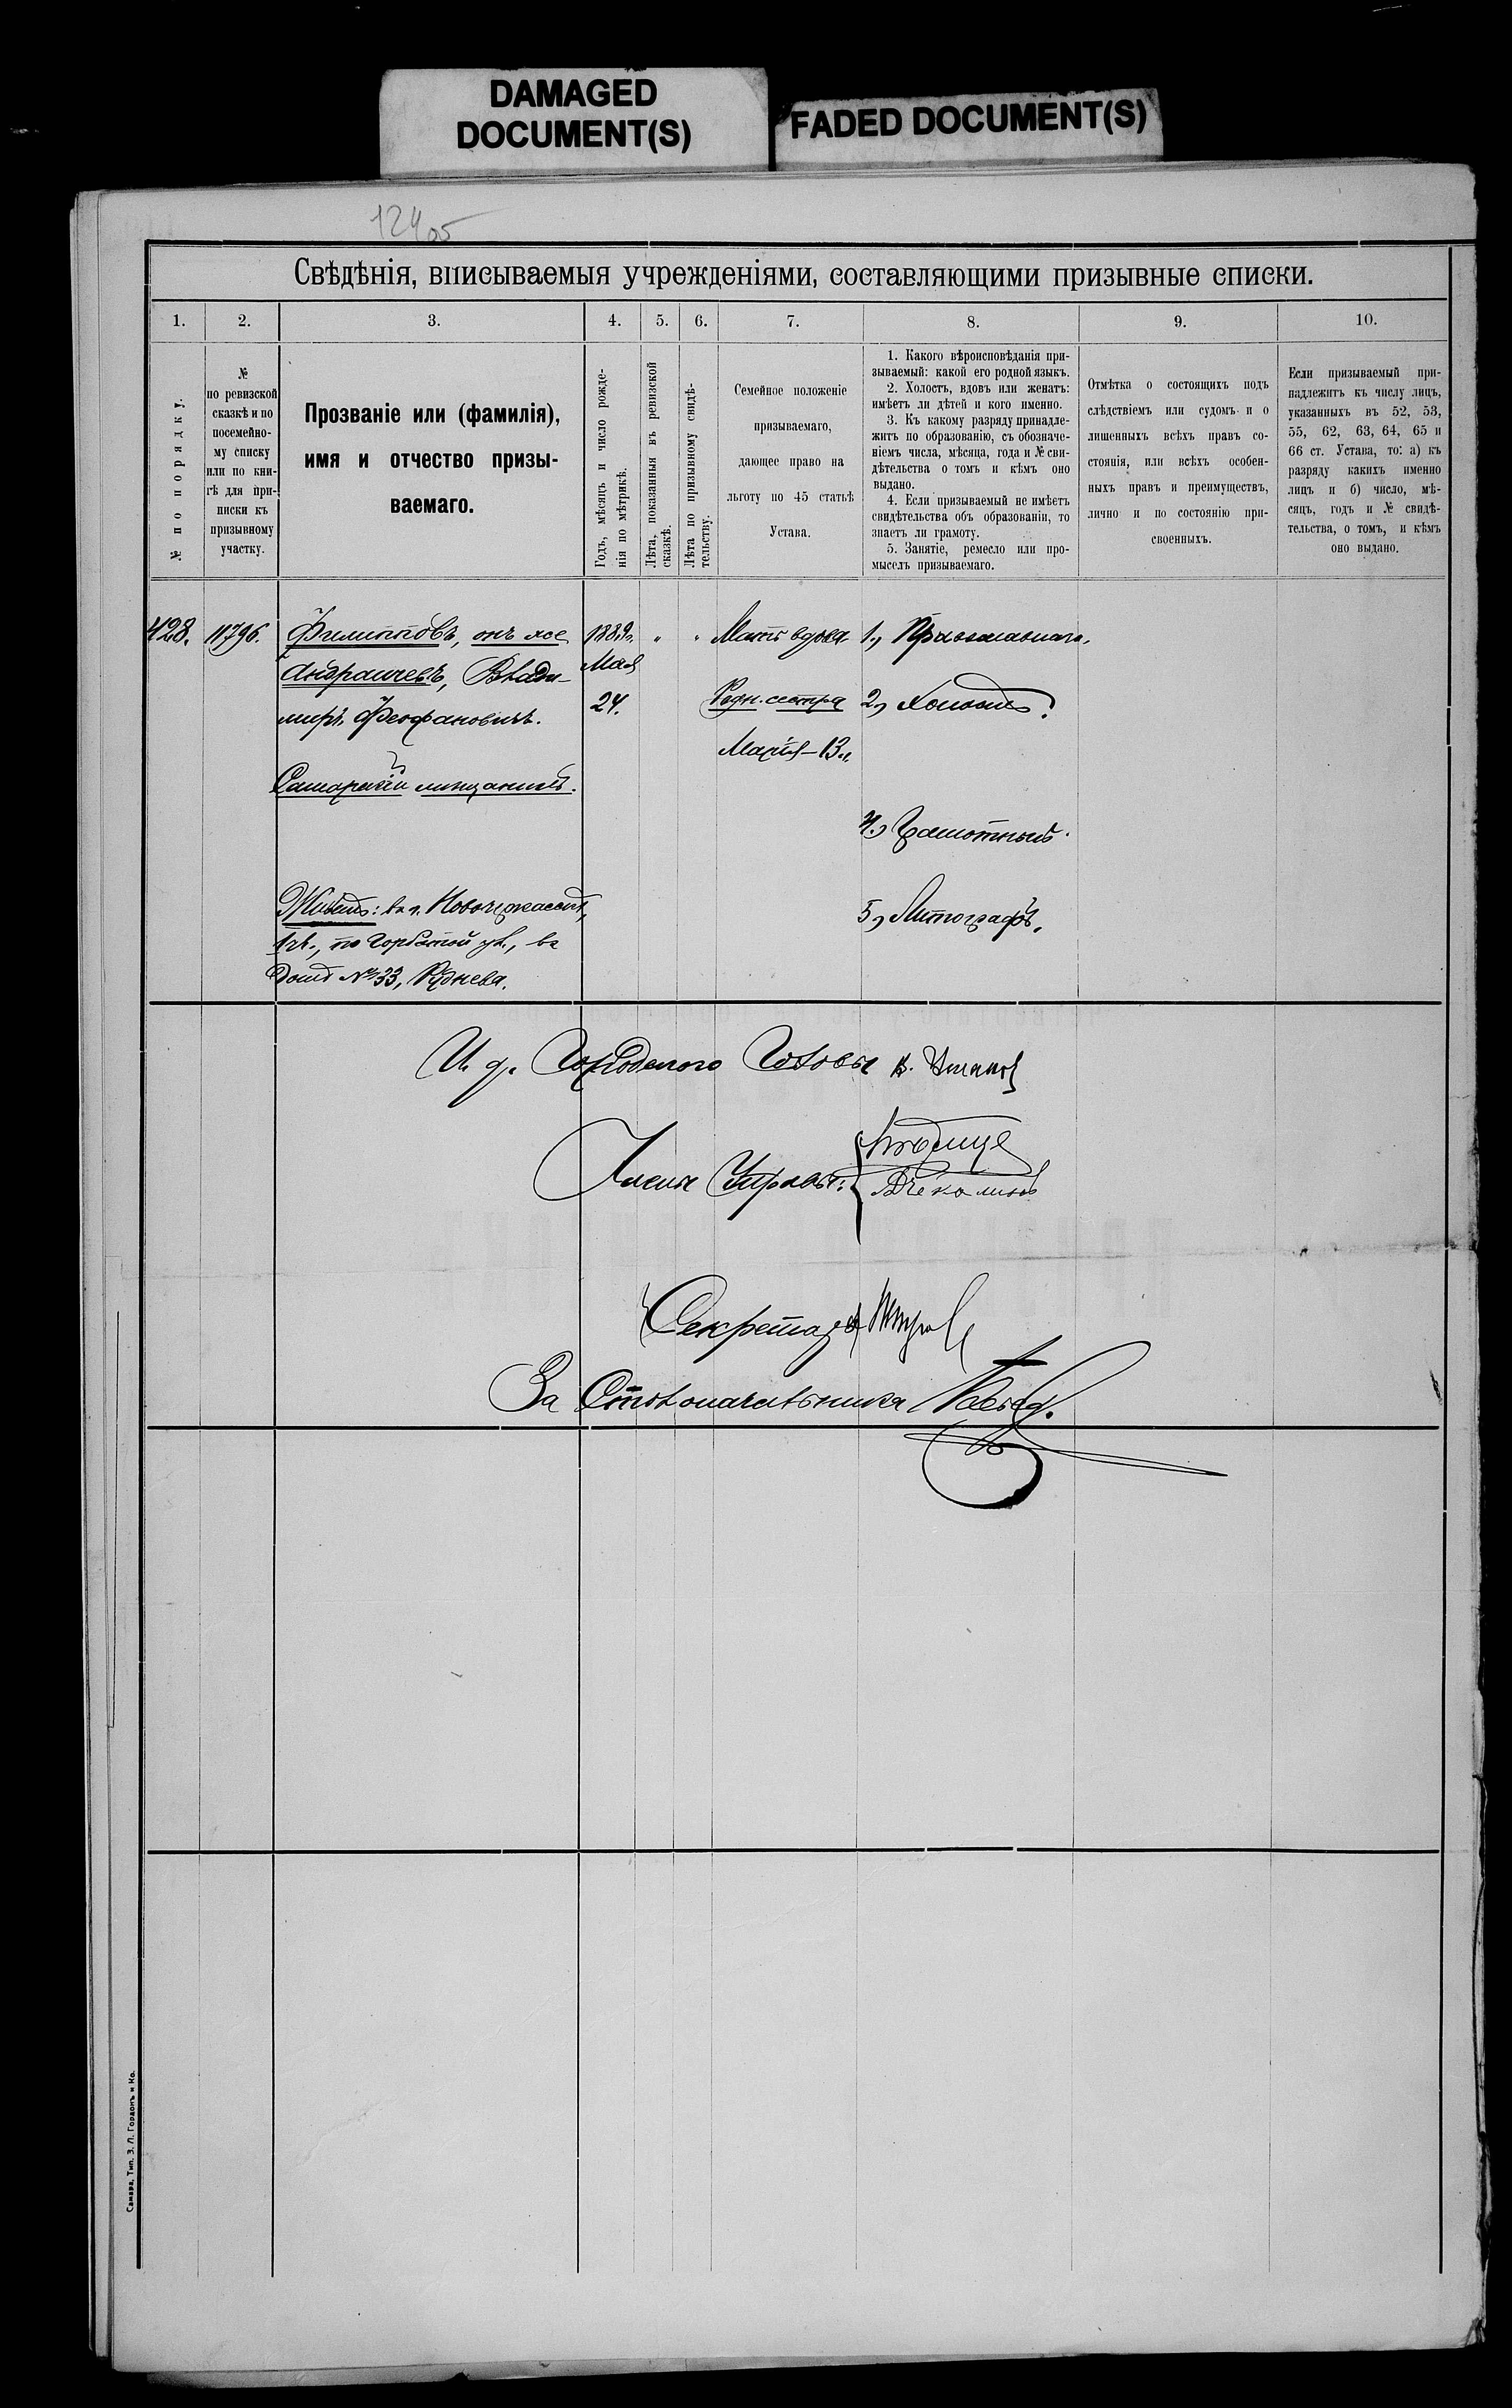 DAMAGED
DOCUMENT(S)
FADED DOCUMENT(S)
Свѣдѣнія, вписываемыя учрежденіями, составляющими призывные списки.
1.
2.
3.
4.
5.
6.
7.
8.
9.
10.
№ по порядку.
№
по ревизской
сказкѣ и по
посемейно-
му списку
или по кни-
гѣ для при-
писки къ
призывному
участку.
Прозваніе или (фамилія),
имя и отчество призы-
ваемаго.
Годъ, мѣсяцъ и число рожде-
нія по мѣтрикѣ.
Лѣта, показанныя въ ревизской
сказкѣ.
Лѣта по призывному свидѣ-
тельству.
Семейное положеніе
призываемаго,
дающее право на
льготу по 45 статьѣ
Устава.
1. Какого вѣроисповѣданія при-
зываемый: какой его родной языкъ.
2. Холостъ, вдовъ или женатъ:
имѣетъ ли дѣтей и кого именно.
3. Къ какому разряду принадле-
житъ по образованію, съ обозначе-
ніемъ числа, мѣсяца, года и № сви-
дѣтельства о томъ и кѣмъ оно
выдано.
4. Если призываемый не имѣетъ
свидѣтельства объ образованіи, то
знаетъ ли грамоту.
5. Занятіе, ремесло или про-
мыселъ призываемаго.
Отмѣтка о состоящихъ подъ
слѣдствіемъ или судомъ и о
лишенныхъ всѣхъ правъ со-
стоянія, или всѣхъ особен-
ныхъ правъ и преимуществъ,
лично и по состоянію при-
своенныхъ.
Если призываемый при-
надлежитъ къ числу лицъ,
указанныхъ въ 52, 53,
55, 62, 63, 64, 65 и
66 ст. Устава, то: а) къ
разряду какихъ именно
лицъ и б) число, мѣ-
сяцъ, годъ и № свидѣ-
тельства, о томъ, и кѣмъ
оно выдано.
428.
11796.
Филипповъ, онъ же
Андраичевъ, Влади-
миръ Феофановичъ.
Самарскій мѣщанинъ.
Живетъ: въ г. Новочеркасскѣ,
1 ч., по Горбатой ул., въ
домѣ № 33, Руднева.
1889 г.
Мая
24.
"
"
Мать вдова
Родн. сестра
Марія - 13 л.
1., Православнаго.
2., Холостъ.
4., Грамотный.
5., Литографъ.
И. д. Городского Головы
Члены Управы:
Секретарь
За Столоначальника
Самара, Тип. З. Л. Гордонъ и Ко.